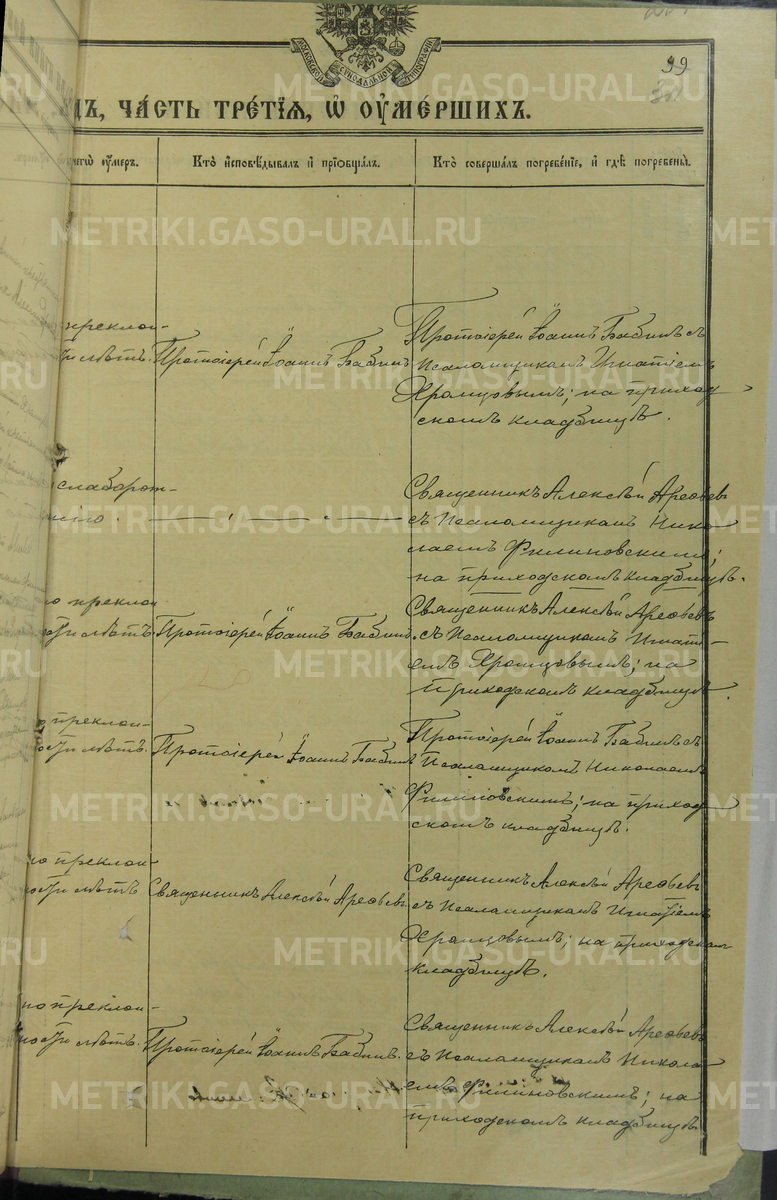 МОСКОВСКОЙ СѴНОДАЛЬНОЙ ТИПОГРАФІИ
99
ДЪ, ЧА́СТЬ ТРЕ́ТІЯ, Ѡ҆ ОУ҆МЕ́РШИХЪ.
чегѡ̀ оу҆́меръ.
Кто̀ и҆сповѣ́дывалъ и҆ прїобща́лъ.
Кто̀ соверша́лъ погребе́нїе, и҆ гдѣ̀ погребены̀.
преклон-
сти лѣтъ.
Протоіерей Іоаннъ Бабинъ
Протоіерей Іоаннъ Бабинъ съ
Псаломщикомъ Игнатіемъ
Храмцовымъ; на приход
скомъ кладбищѣ.
слаборож-
Священникъ Алексѣй Арефьевъ
съ Псаломщикомъ Нико
лаемъ Филиновскимъ;
на приходскомъ кладбищѣ.
но преклон
ности лѣтъ
Протоіерей Іоаннъ Бабинъ.
Священникъ Алексѣй Арефьевъ
съ Псаломщикомъ Игнаті-
емъ Храмцовымъ; на
приходскомъ кладбищѣ.
преклон-
ности лѣтъ.
Протоіерей Іоаннъ Бабинъ
Протоіерей Іоаннъ Бабинъ съ
Псаломщикомъ Николаемъ
Филиновскимъ; на приход
скомъ кладбищѣ.
но преклон-
ности лѣтъ
Священникъ Алексѣй Арефьевъ.
Священникъ Алексѣй Арефьевъ
съ Псаломщикомъ Игнатіемъ
Храмцовымъ; на приходскомъ
кладбищѣ.
но преклон-
ности лѣтъ.
Протоіерей Іоаннъ Бабинъ.
Священникъ Алексѣй Арефьевъ
съ Псаломщикомъ Никола
емъ Филиновскимъ; на
приходскомъ кладбищѣ
METRIKI.GASO-URAL.RU